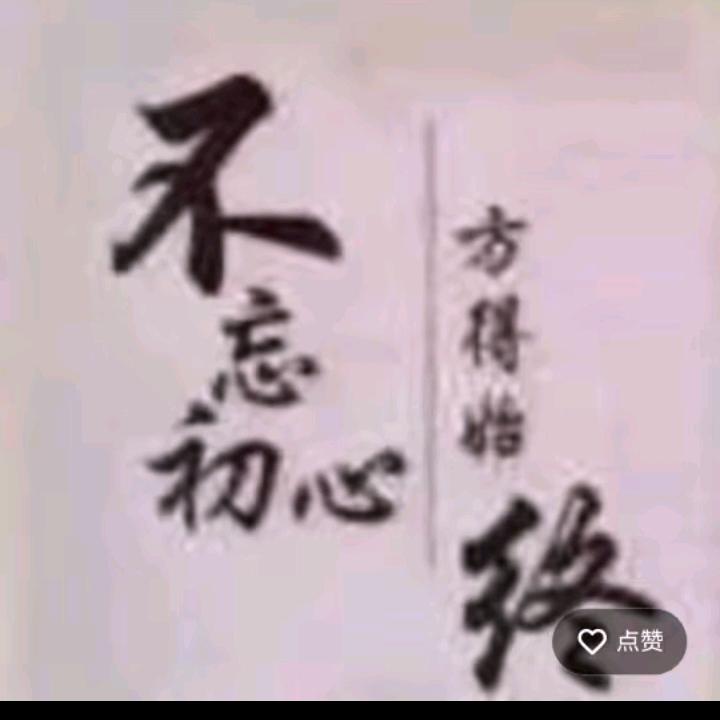 不忘初心
方得始终
点赞